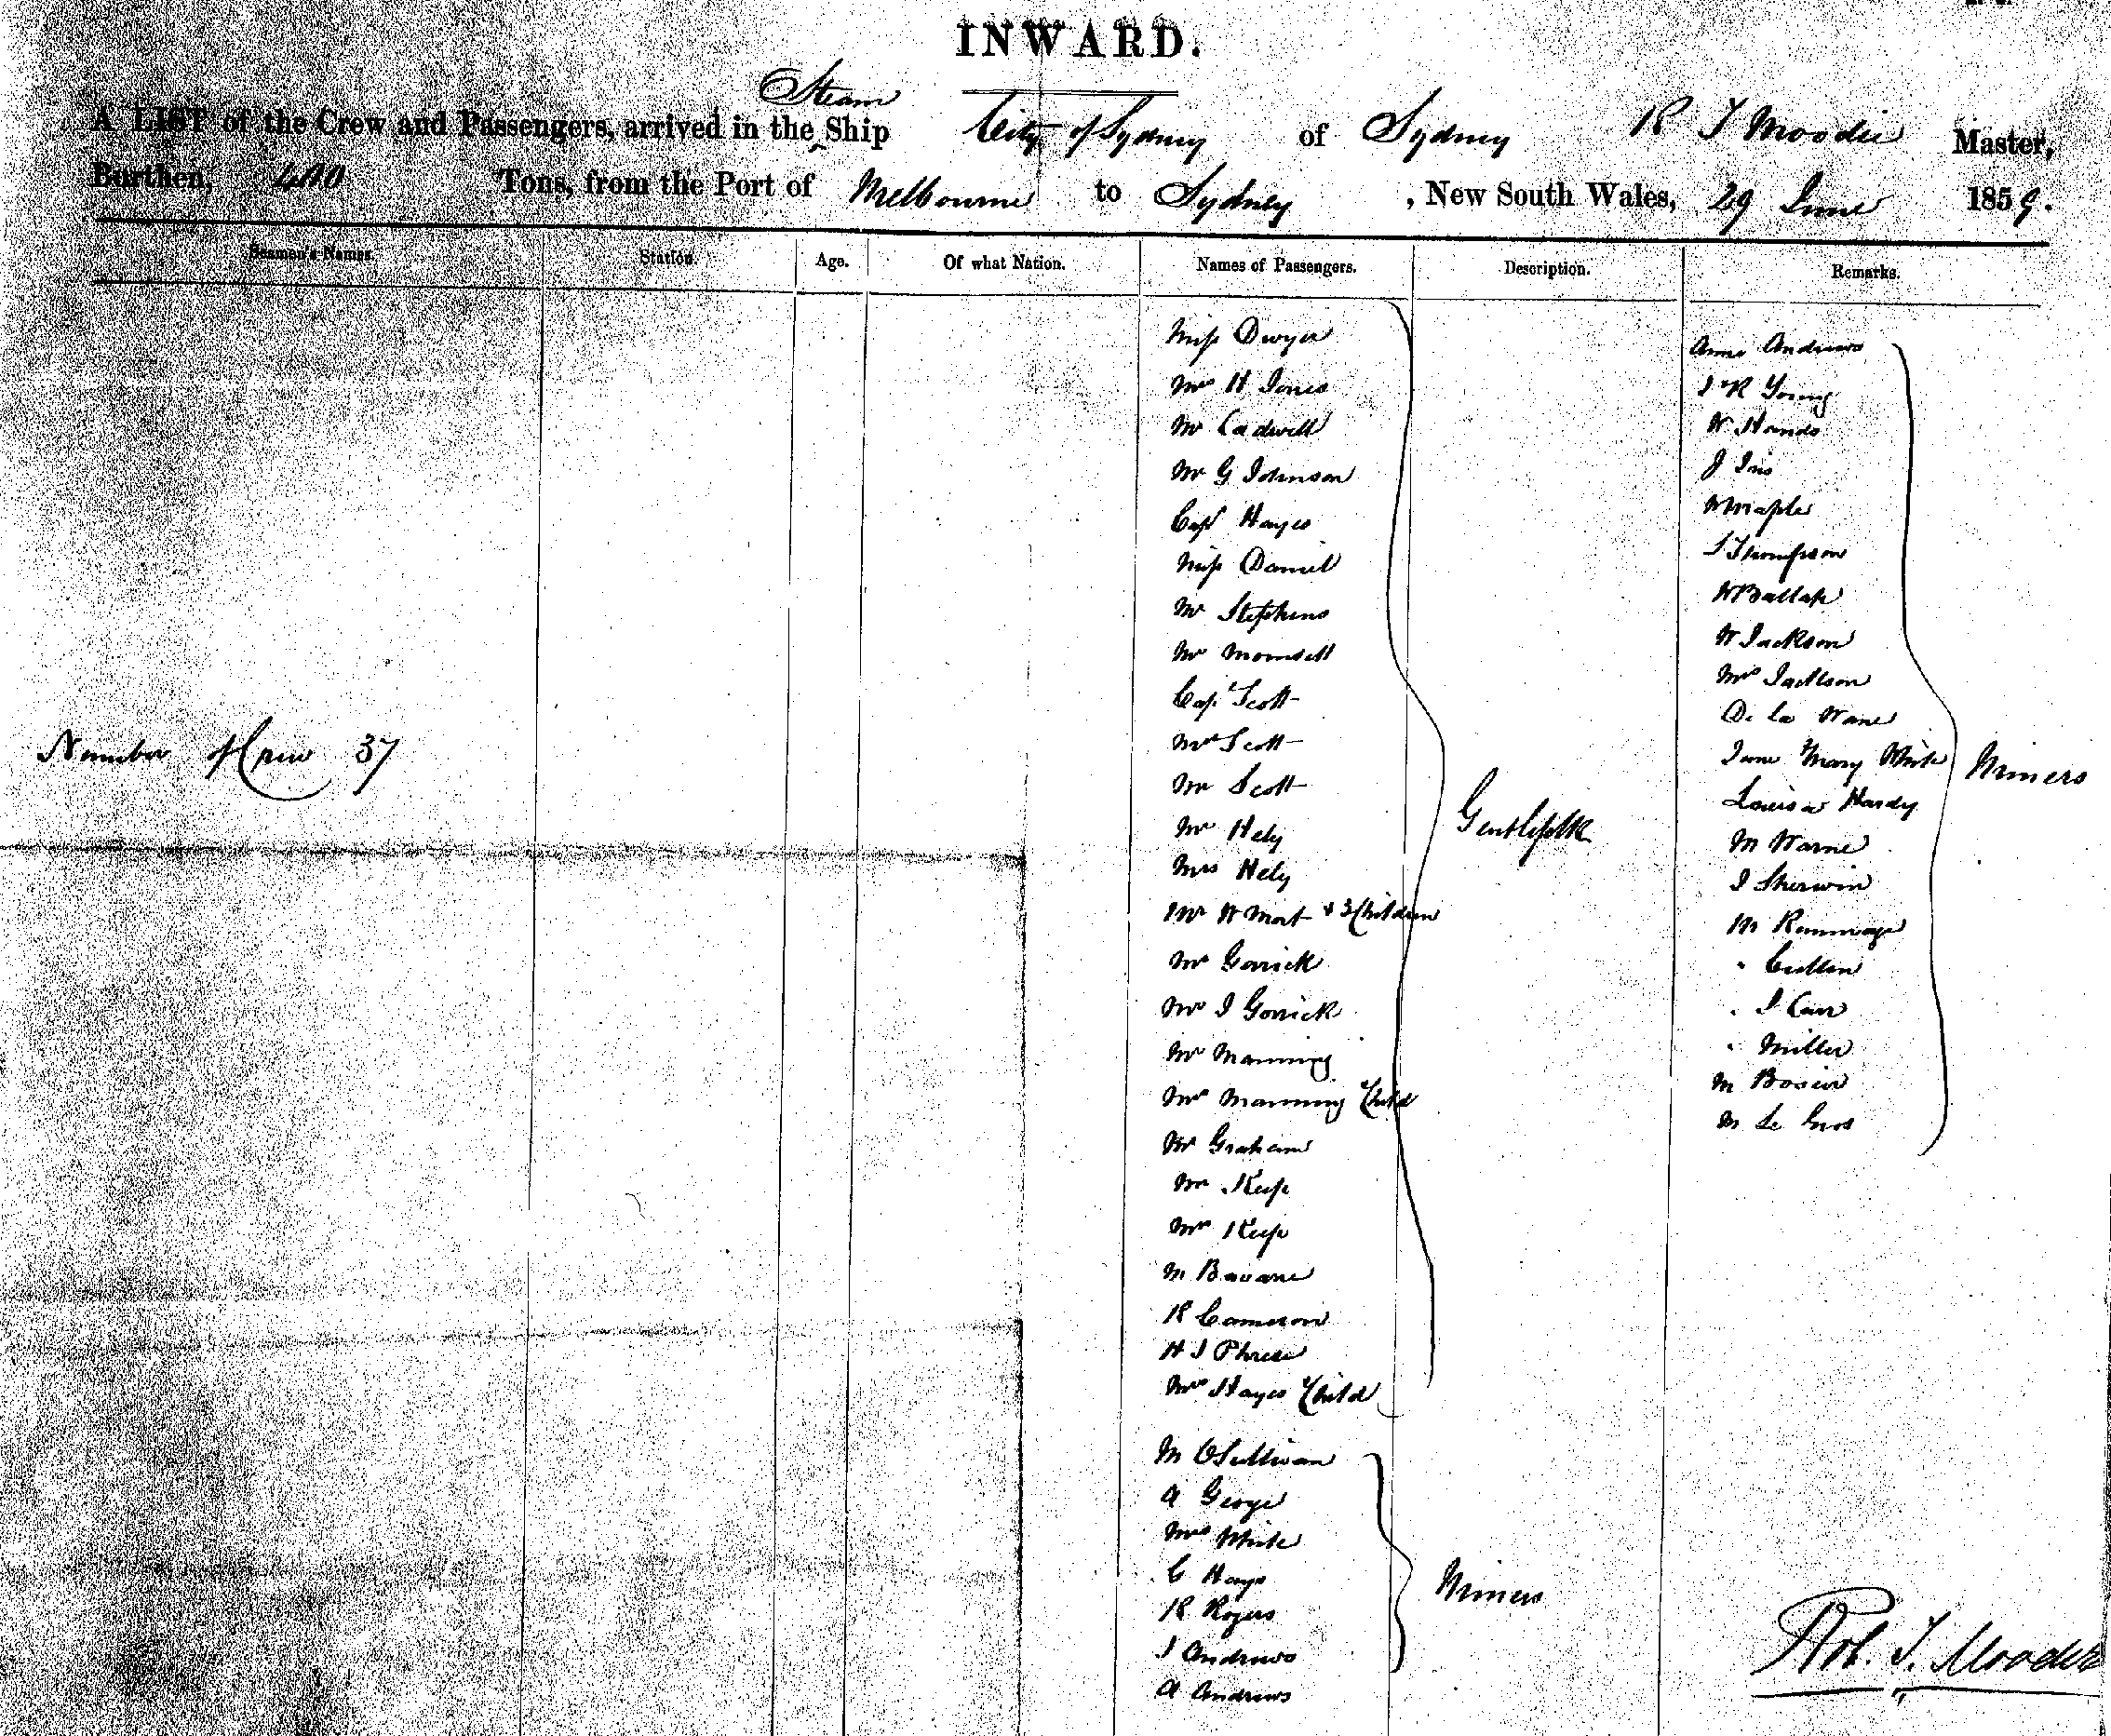 INWARD.
A LIST of the Crew and Passengers, arrived in the Steam Ship City of Sydney of Sydney R T Moodie Master,
Burthen, Tons, from the Port of Melbourne to Sydney, New South Wales, 29 June 1859.
Seamen's Names. Station. Age. Of what Nation. Names of Passengers. Description. Remarks.
Miss Dwyer
Mrs H Jones
Mr Cadwell
Mr G Johnson
Capt Hayes
Miss Daniel
Mr Stephens
Mr
Capt Scott
Mrs Scott
Mr Scott
Mr Hely
Mrs Hely
Mr W Mort & 3 Children
Mr Garrick
Mr J Garrick
Mr Manning
Mrs Manning & Child
Mr Graham
Mr Keep
Mrs Keep
M
R Cameron
H J
Mrs Hayes & Child
Gentlefolk
M O'Sullivan
A George
Mrs White
C Hays
R Rogers
J Andrews
A Andrews
Miners
Number of Crew 37
Anne Andrews
J & R Young
W Hands
J
W Maples
S Thompson
W
W Jackson
Mrs Jackson
De La Warne
Jane & Mary White
Louisa Hardy
M Warne
J Sherwin
M Rummage
" Cullen
" J Carr
" Miller
M
M Le Gros
Miners
Rob. T. Moodie